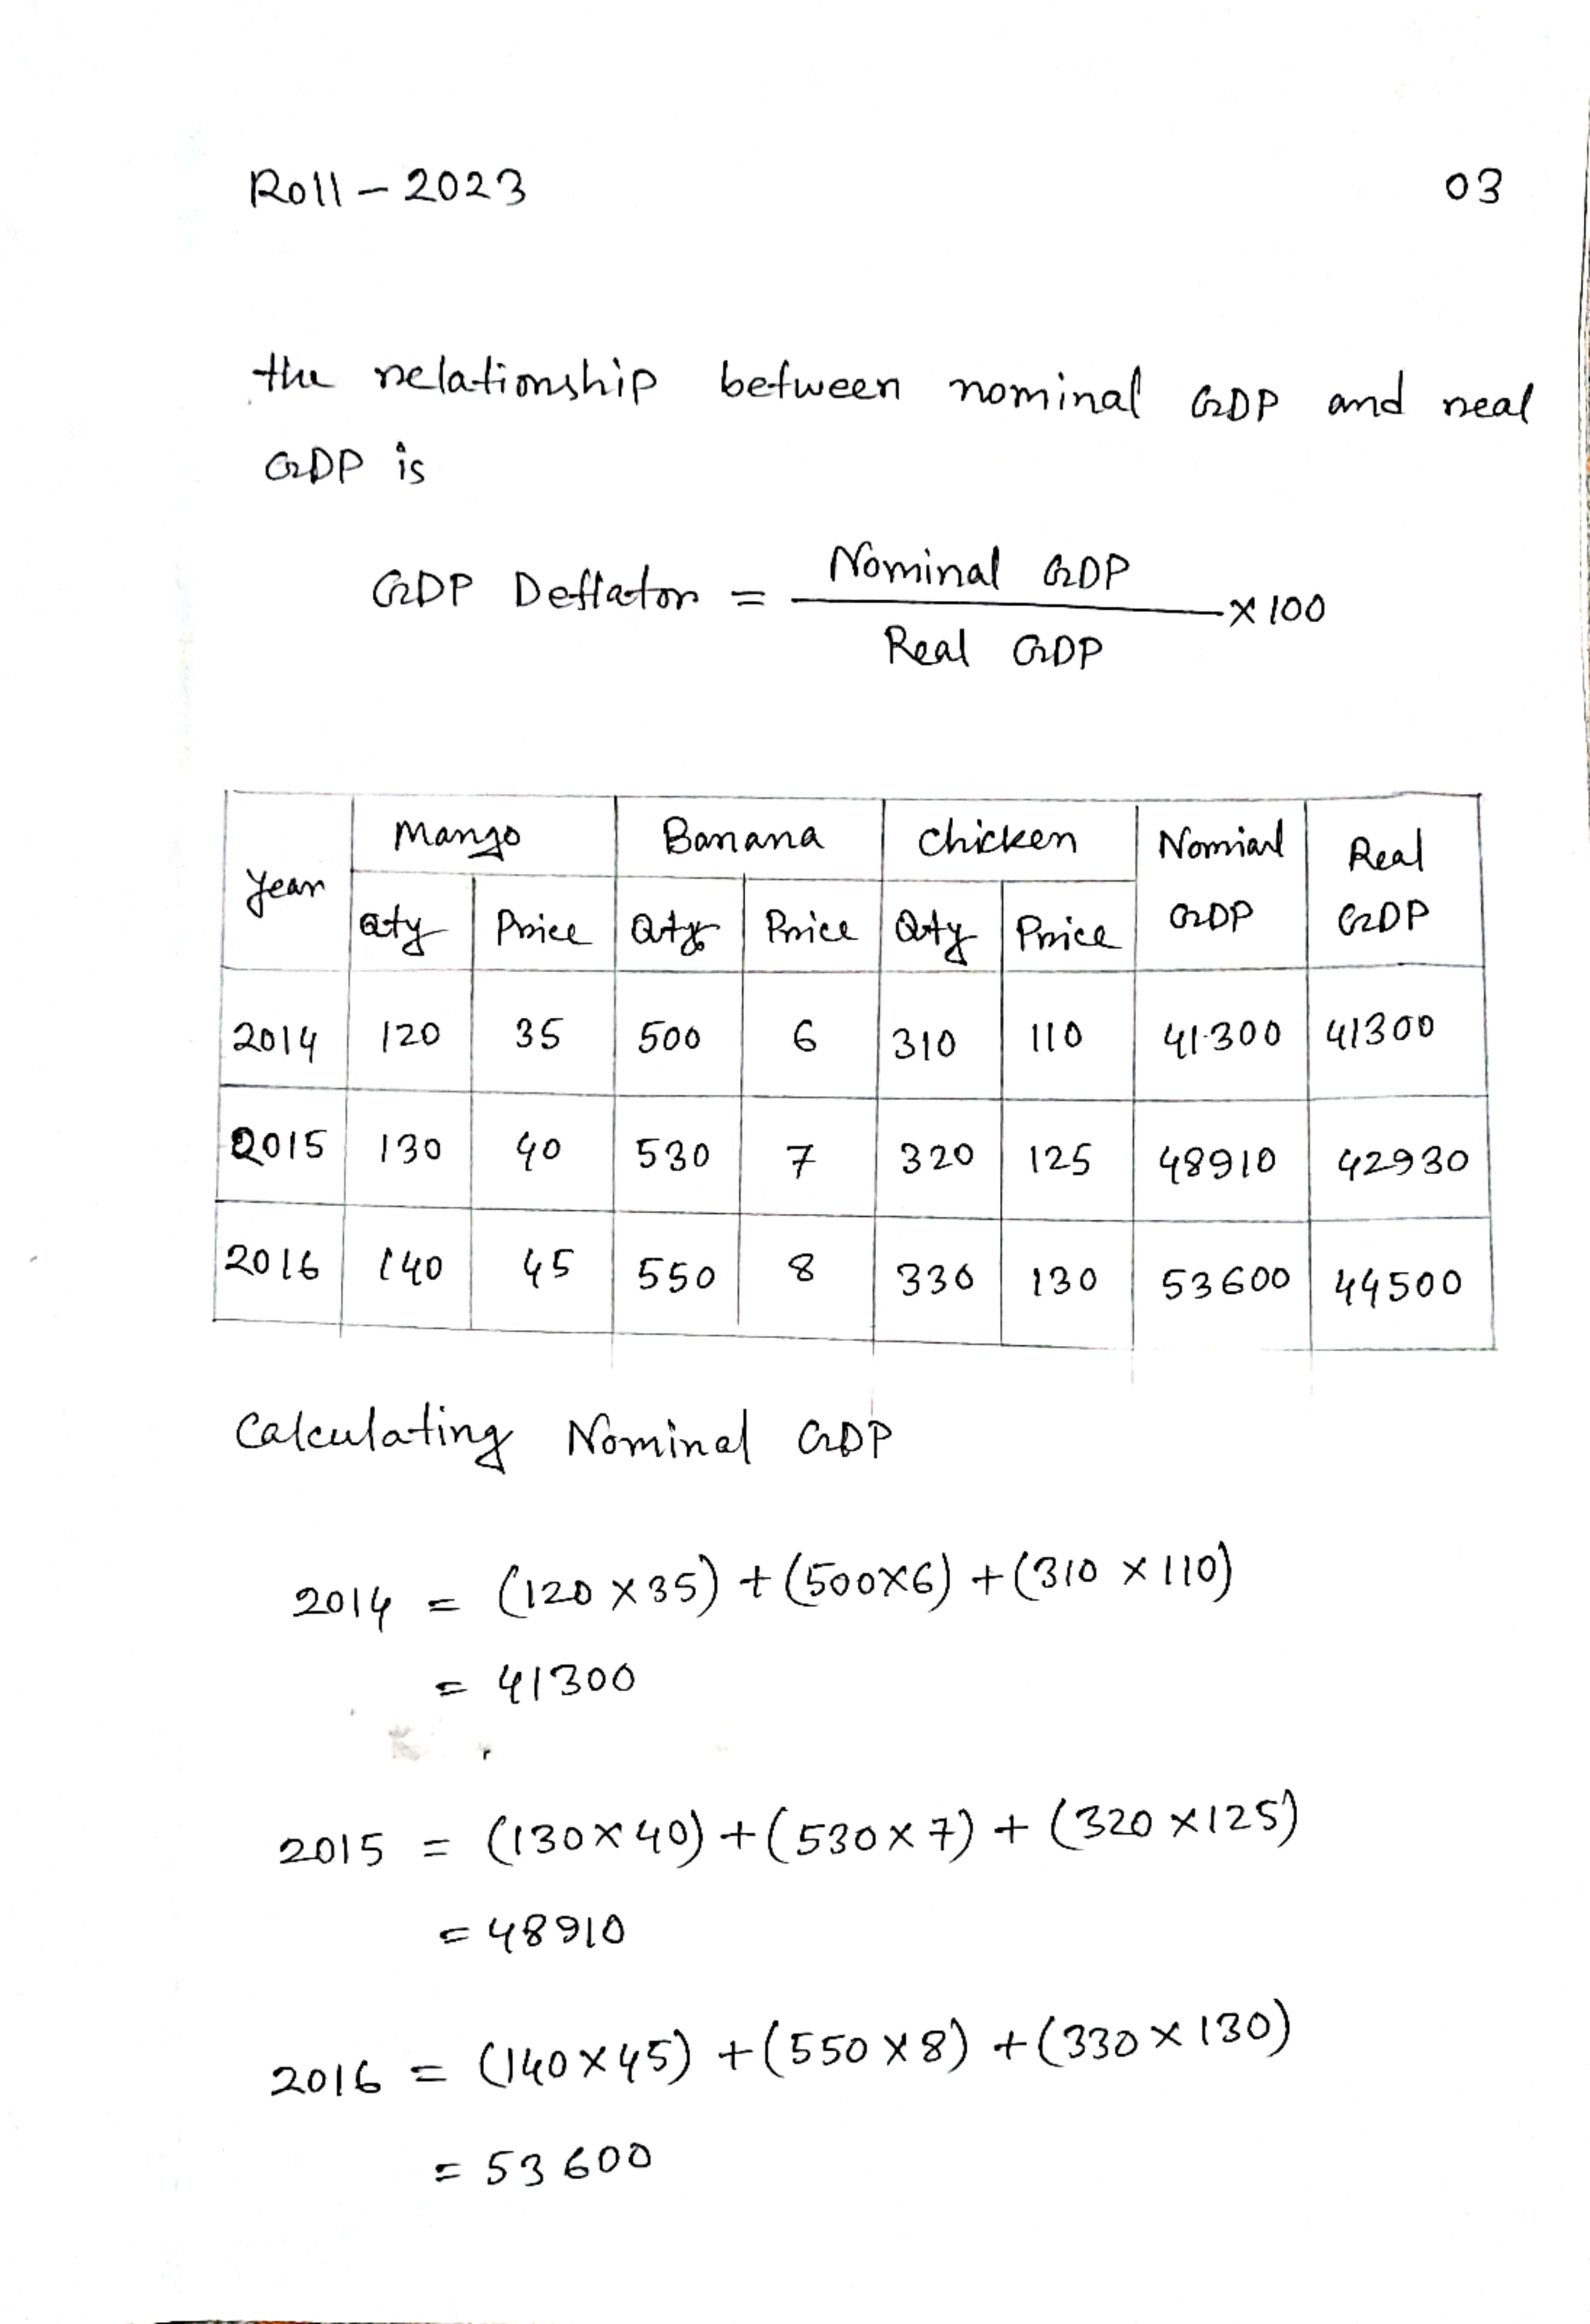 Roll - 2023 03
the relationship between nominal GDP and real
GDP is
GDP Deflator = Nominal GDP / Real GDP × 100
Year Mango Banana Chicken Nomianl GDP Real GDP
Qty Price Qty Price Qty Price
2014 120 35 500 6 310 110 41300 41300
2015 130 40 530 7 320 125 48910 42930
2016 140 45 550 8 330 130 53600 44500
Calculating Nominal GDP
2014 = (120 × 35) + (500×6) + (310 × 110)
= 41300
2015 = (130×40) + (530×7) + (320 ×125)
= 48910
2016 = (140×45) + (550×8) + (330×130)
= 53600